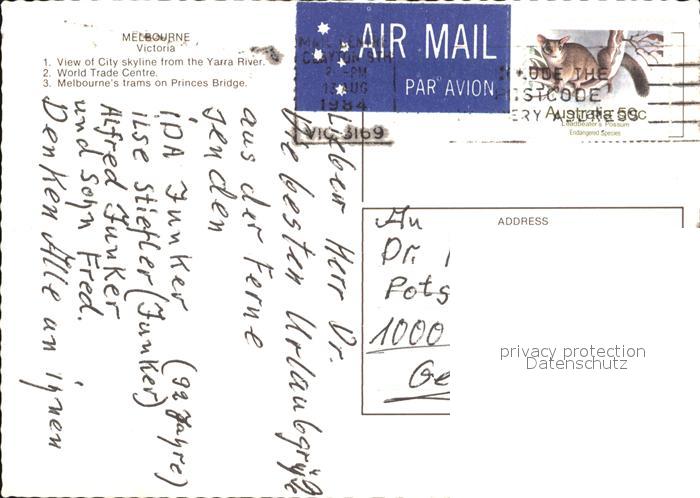 MELBOURNE
Victoria
1. View of City skyline from the Yarra River.
2. World Trade Centre.
3. Melbourne's trams on Princes Bridge.
AIR MAIL
PAR AVION
CLAYTON STH
2 -PM
13 AUG
1984
VIC-3169
CODE THE
STCODE
ERY ADDRESS
Australia 50c
Leadbeater's Possum
Endangered Species
Lieber Herr Dr.
die besten Urlaubgrüße
aus der Ferne
senden
IDA Junker (92 Jahre)
ilse Stiefler (Junker)
Alfred Junker
und Sohn Fred.
Denken Alle an ihnen
ADDRESS
An
Dr.
Pots
1000
Ge
privacy protection
Datenschutz